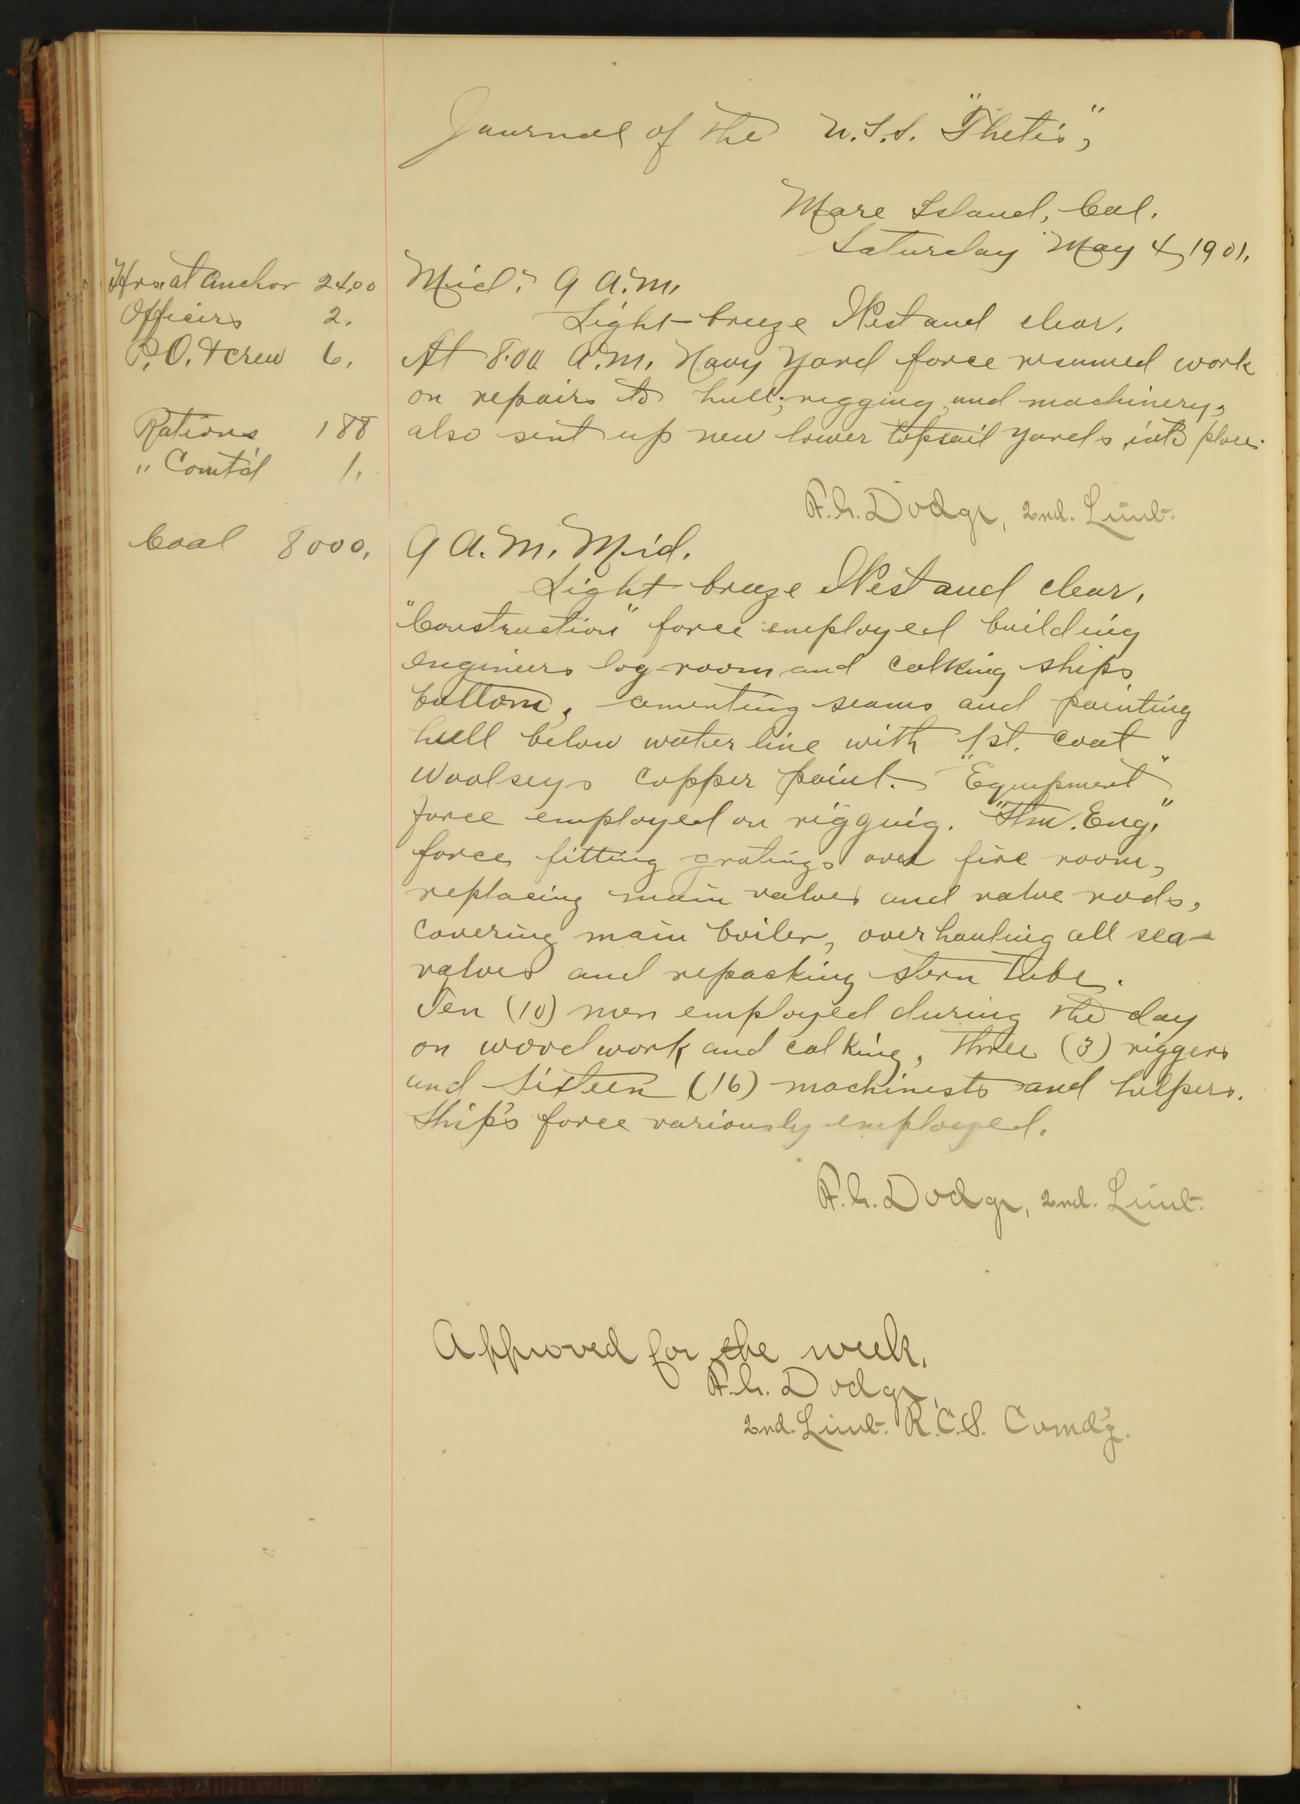 Journal of the U.S.S. "Thetis",
Mare Island, Cal.
Saturday May 4, 1901.
Hrs. at anchor 24.00
Officers 2.
P.O. & crew 6.
Rations 188
" Comt'd 1.
Coal 8000.
Mid. 9 A.M.
Light breeze West and clear.
At 8.00 A.M. Navy Yard force resumed work
on repairs to hull, rigging and machinery,
also sent up new lower topsail yards into place.
F.G. Dodge, 2nd. Lieut.
9 A.M. Mid.
Light breeze West and clear.
"Construction" force employed building
engineers log-room and calking ships
bottom, cementing seams and painting
hull below water line with 1st. coat
Woolseys copper paint. "Equipment"
force employed on rigging. "Stm. Eng."
force fitting gratings over fire room,
replacing main valves and valve rods,
covering main boiler, overhauling all sea-
valves and repacking stern tube.
Ten (10) men employed during the day
on woodwork and calking, three (3) riggers
and sixteen (16) machinests and helpers.
Ship's force variously employed.
F.G. Dodge, 2nd. Lieut.
Approved for the week,
F.G. Dodge,
2nd. Lieut. R.C.S. Comd'g.